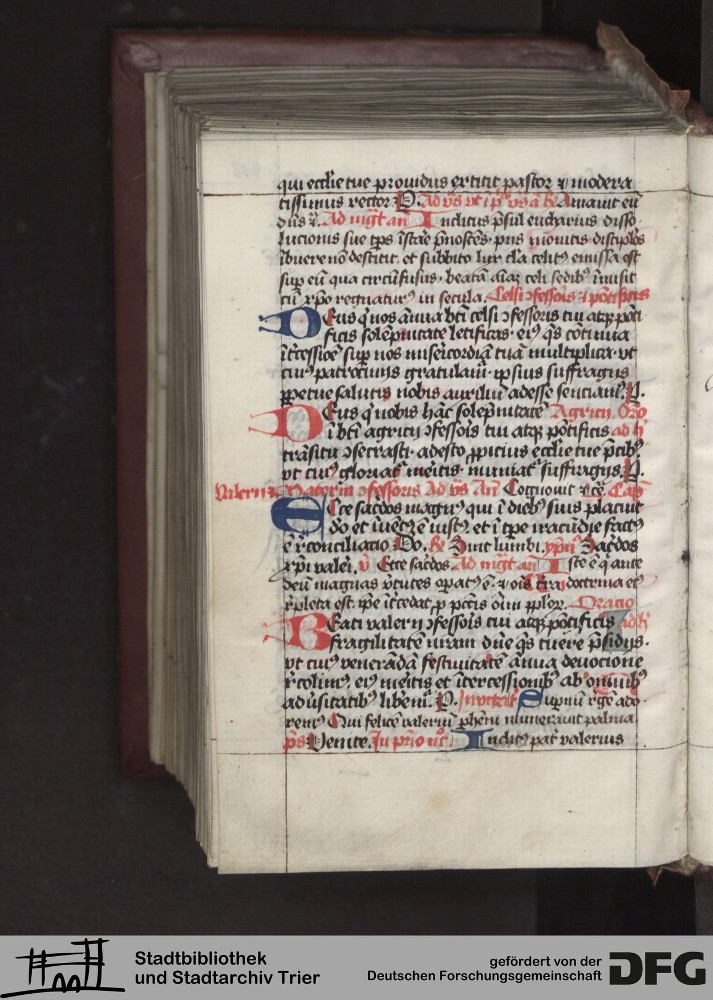 qui ecclie tue prouidus extitit pastor ⁊ modera
tissimus rector P. Ad vs̄ vt ip̄ vs̄ a he Amauit eū
dūs v̄. Ad mgt̄ an̄ Inclitus p̄sul eucharius disso
lucionis sue tp̄s īstāe p̄noscēs pijs monitis discip̄los
ībuere nō destitit et subbito lux cla celitꝰ emissa est
sup eū qua circūfusus beatā aīaz celi sedibꝰ īmisit
cū xp̄o regnaturꝰ in secula. Celsi ꝯfessoris ⁊ pōtificis
Deus q nos ānua bti celsi ꝯfessoris tui atqꝫ pōti
ficis solēpnitate letificas eiꝰ qs cōtinua
ītcessioē sup nos misericordiā tuā multiplica vt
cuiꝰ patrocinijs gratulamᷣ ipsius suffragijs
ppetue salutis nobis auxiliū adesse senciamᷣ. P.
Deus q nobis hāc solēpnitatē Agricij. Oro
ī bti agricij ꝯfessoꝭs tui atqꝫ pōtificis ad h
trāsitu ꝯsecrasti adesto ppicius ecclie tue p̄cibꝰ
vt cuiꝰ gloriatᷣ meītis muniatᷣ suffragijs. P.
Valerij ꝯfessoris Ad vs̄ An̄ Cognouit ⁊ cē. Cap
Ecce sacdos magnꝰ qui ī diebꝰ suis placuit
do et īuētꝰ ē iustꝰ et ī tpe iracūdie factꝰ
ē recōciliacio Do. he Sint lumbi. Sacdos
xp̄i valeri. v̄ Ecce sacdos Ad mgt̄ an̄ Iste ē q ante
deū magnas vtutes opatꝰ ē ⁊ oīs tra doctrina eiꝰ
repleta est ipe ītcedat p pctis oīm pplor. Oracio
Beati valerij ꝯfessoꝭs tui atqꝫ pōtificis ad h
fragilitatē nram dne qs tuere p̄sidijs
vt cuiꝰ venerādā festiuitatē ānua deuocione
recolimꝰ eiꝰ meītis et ītercessionibꝰ ab omnibꝰ
aduersitatibꝰ liberemᷣ. P. Inuitat Supnū regē ado
remꝰ Qui felicē valeriū phēni munerauit palma
ps̄ Venite. In p̄mo nō Inclitꝰ patᷣ valerius
Stadtbibliothek
und Stadtarchiv Trier
gefördert von der
Deutschen Forschungsgemeinschaft
DFG